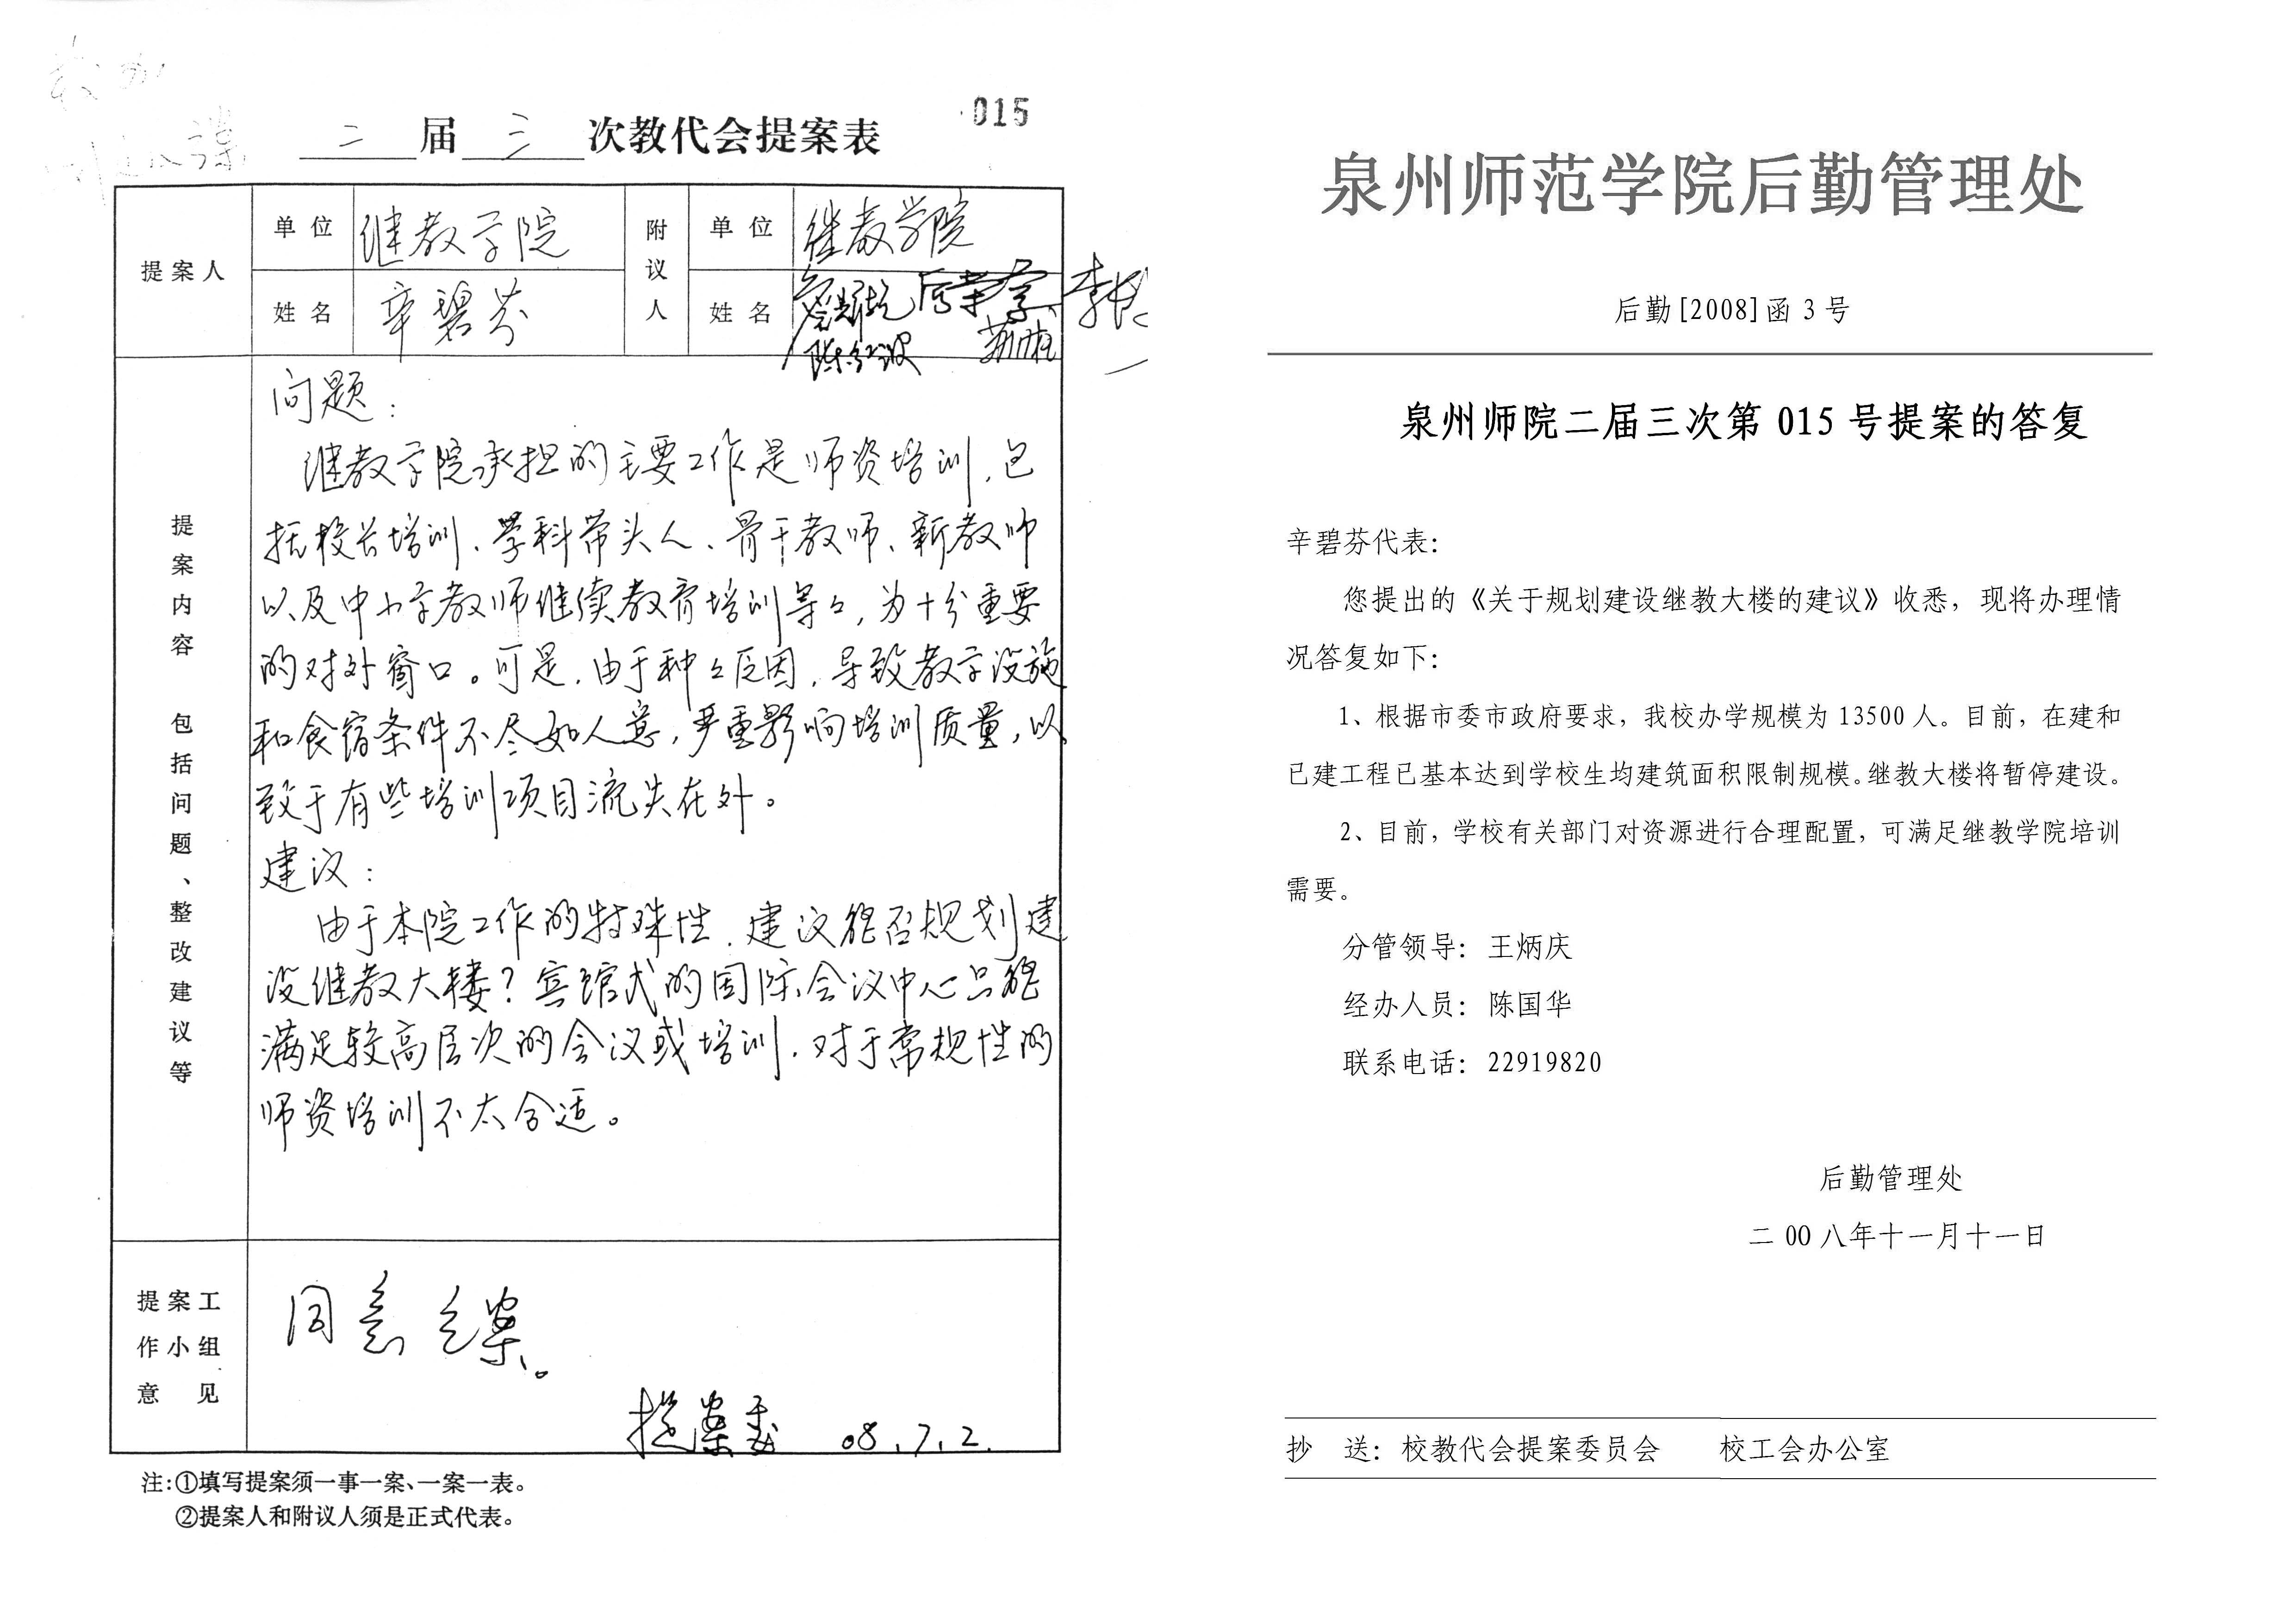 015
二届三次教代会提案表
提案人
单位 继教学院
姓名 辛碧芬
附议人
单位 继教学院
姓名
陈红波
提案内容 包括问题、整改建议等
问题：
继教学院承担的主要工作是师资培训，包
括校长培训、学科带头人、骨干教师、新教师
以及中小学教师继续教育培训等々，为十分重要
的对外窗口。可是，由于种々原因，导致教学设施
和食宿条件不尽如人意，严重影响培训质量，以
致于有些培训项目流失在外。
建议：
由于本院工作的特殊性，建议能否规划建
设继教大楼？宾馆式的国际会议中心只能
满足较高层次的会议或培训，对于常规性的
师资培训不太合适。
提案工
作小组
意见
同意立案。
提案委 08.7.2.
注:①填写提案须一事一案、一案一表。
②提案人和附议人须是正式代表。
泉州师范学院后勤管理处
后勤[2008]函 3 号
泉州师院二届三次第 015 号提案的答复
辛碧芬代表:
您提出的《关于规划建设继教大楼的建议》收悉，现将办理情
况答复如下:
1、根据市委市政府要求，我校办学规模为 13500 人。目前，在建和
已建工程已基本达到学校生均建筑面积限制规模。继教大楼将暂停建设。
2、目前，学校有关部门对资源进行合理配置，可满足继教学院培训
需要。
分管领导: 王炳庆
经办人员: 陈国华
联系电话: 22919820
后勤管理处
二 00 八年十一月十一日
抄 送: 校教代会提案委员会 校工会办公室